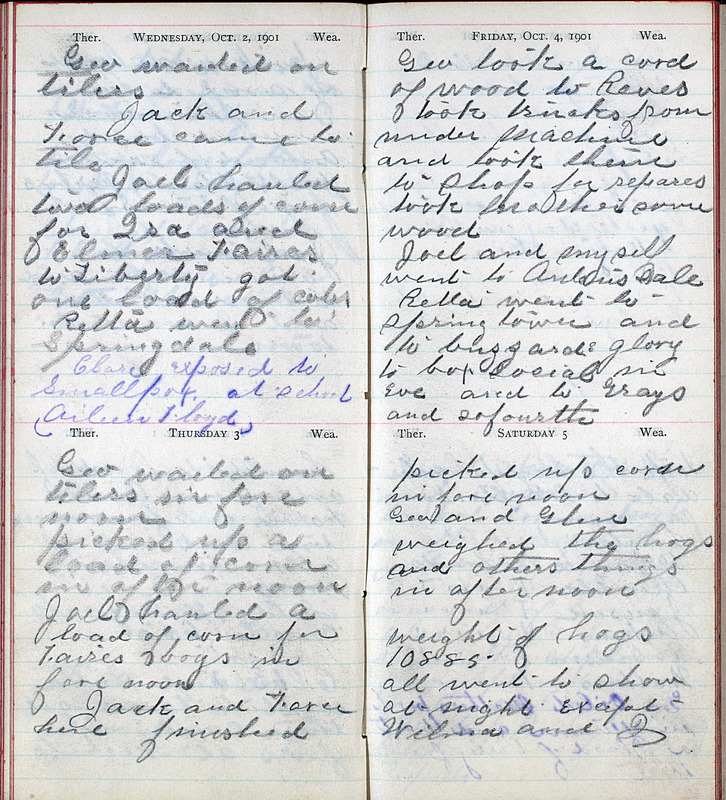 Ther. WEDNESDAY, OCT. 2, 1901 Wea.
Geo waited on
tilers
Jack and
Force came to
tile
Joel hauled
two loads of corn
for Isa and
Elmer Faires
to Liberty got
one load of
Retta went to
Springdale
Clare exposed to
Smallpox, at school
(Aileen Floyd)
Ther. THURSDAY 3 Wea.
Geo waited on
tilers in fore
noon
picked up a
load of corn
in after noon
Joel hauled a
load of corn for
Faires boys in
fore noon
Jack and Force
here finished
Ther. FRIDAY, OCT. 4, 1901 Wea.
Geo took a cord
of wood to Reves
took trucks from
under machine
and took them
to shop for repares
took some
wood
Joel and my self
went to Dale
Retta went to
Spring town and
to buzzards glory
to box social in
Eve and to Grays
and so fourth
Ther. SATURDAY 5 Wea.
picked up corn
in fore noon
Geo and Glen
weighed the hogs
and others things
in after noon
weight of hogs
1088
all went to show
at night except
Wilma and I